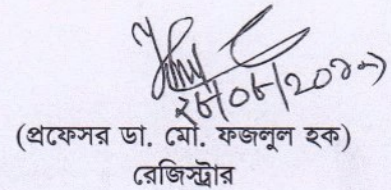 ২৮/০৮/২০১৭
(প্রফেসর ডা. মো. ফজলুল হক)
রেজিস্ট্রার